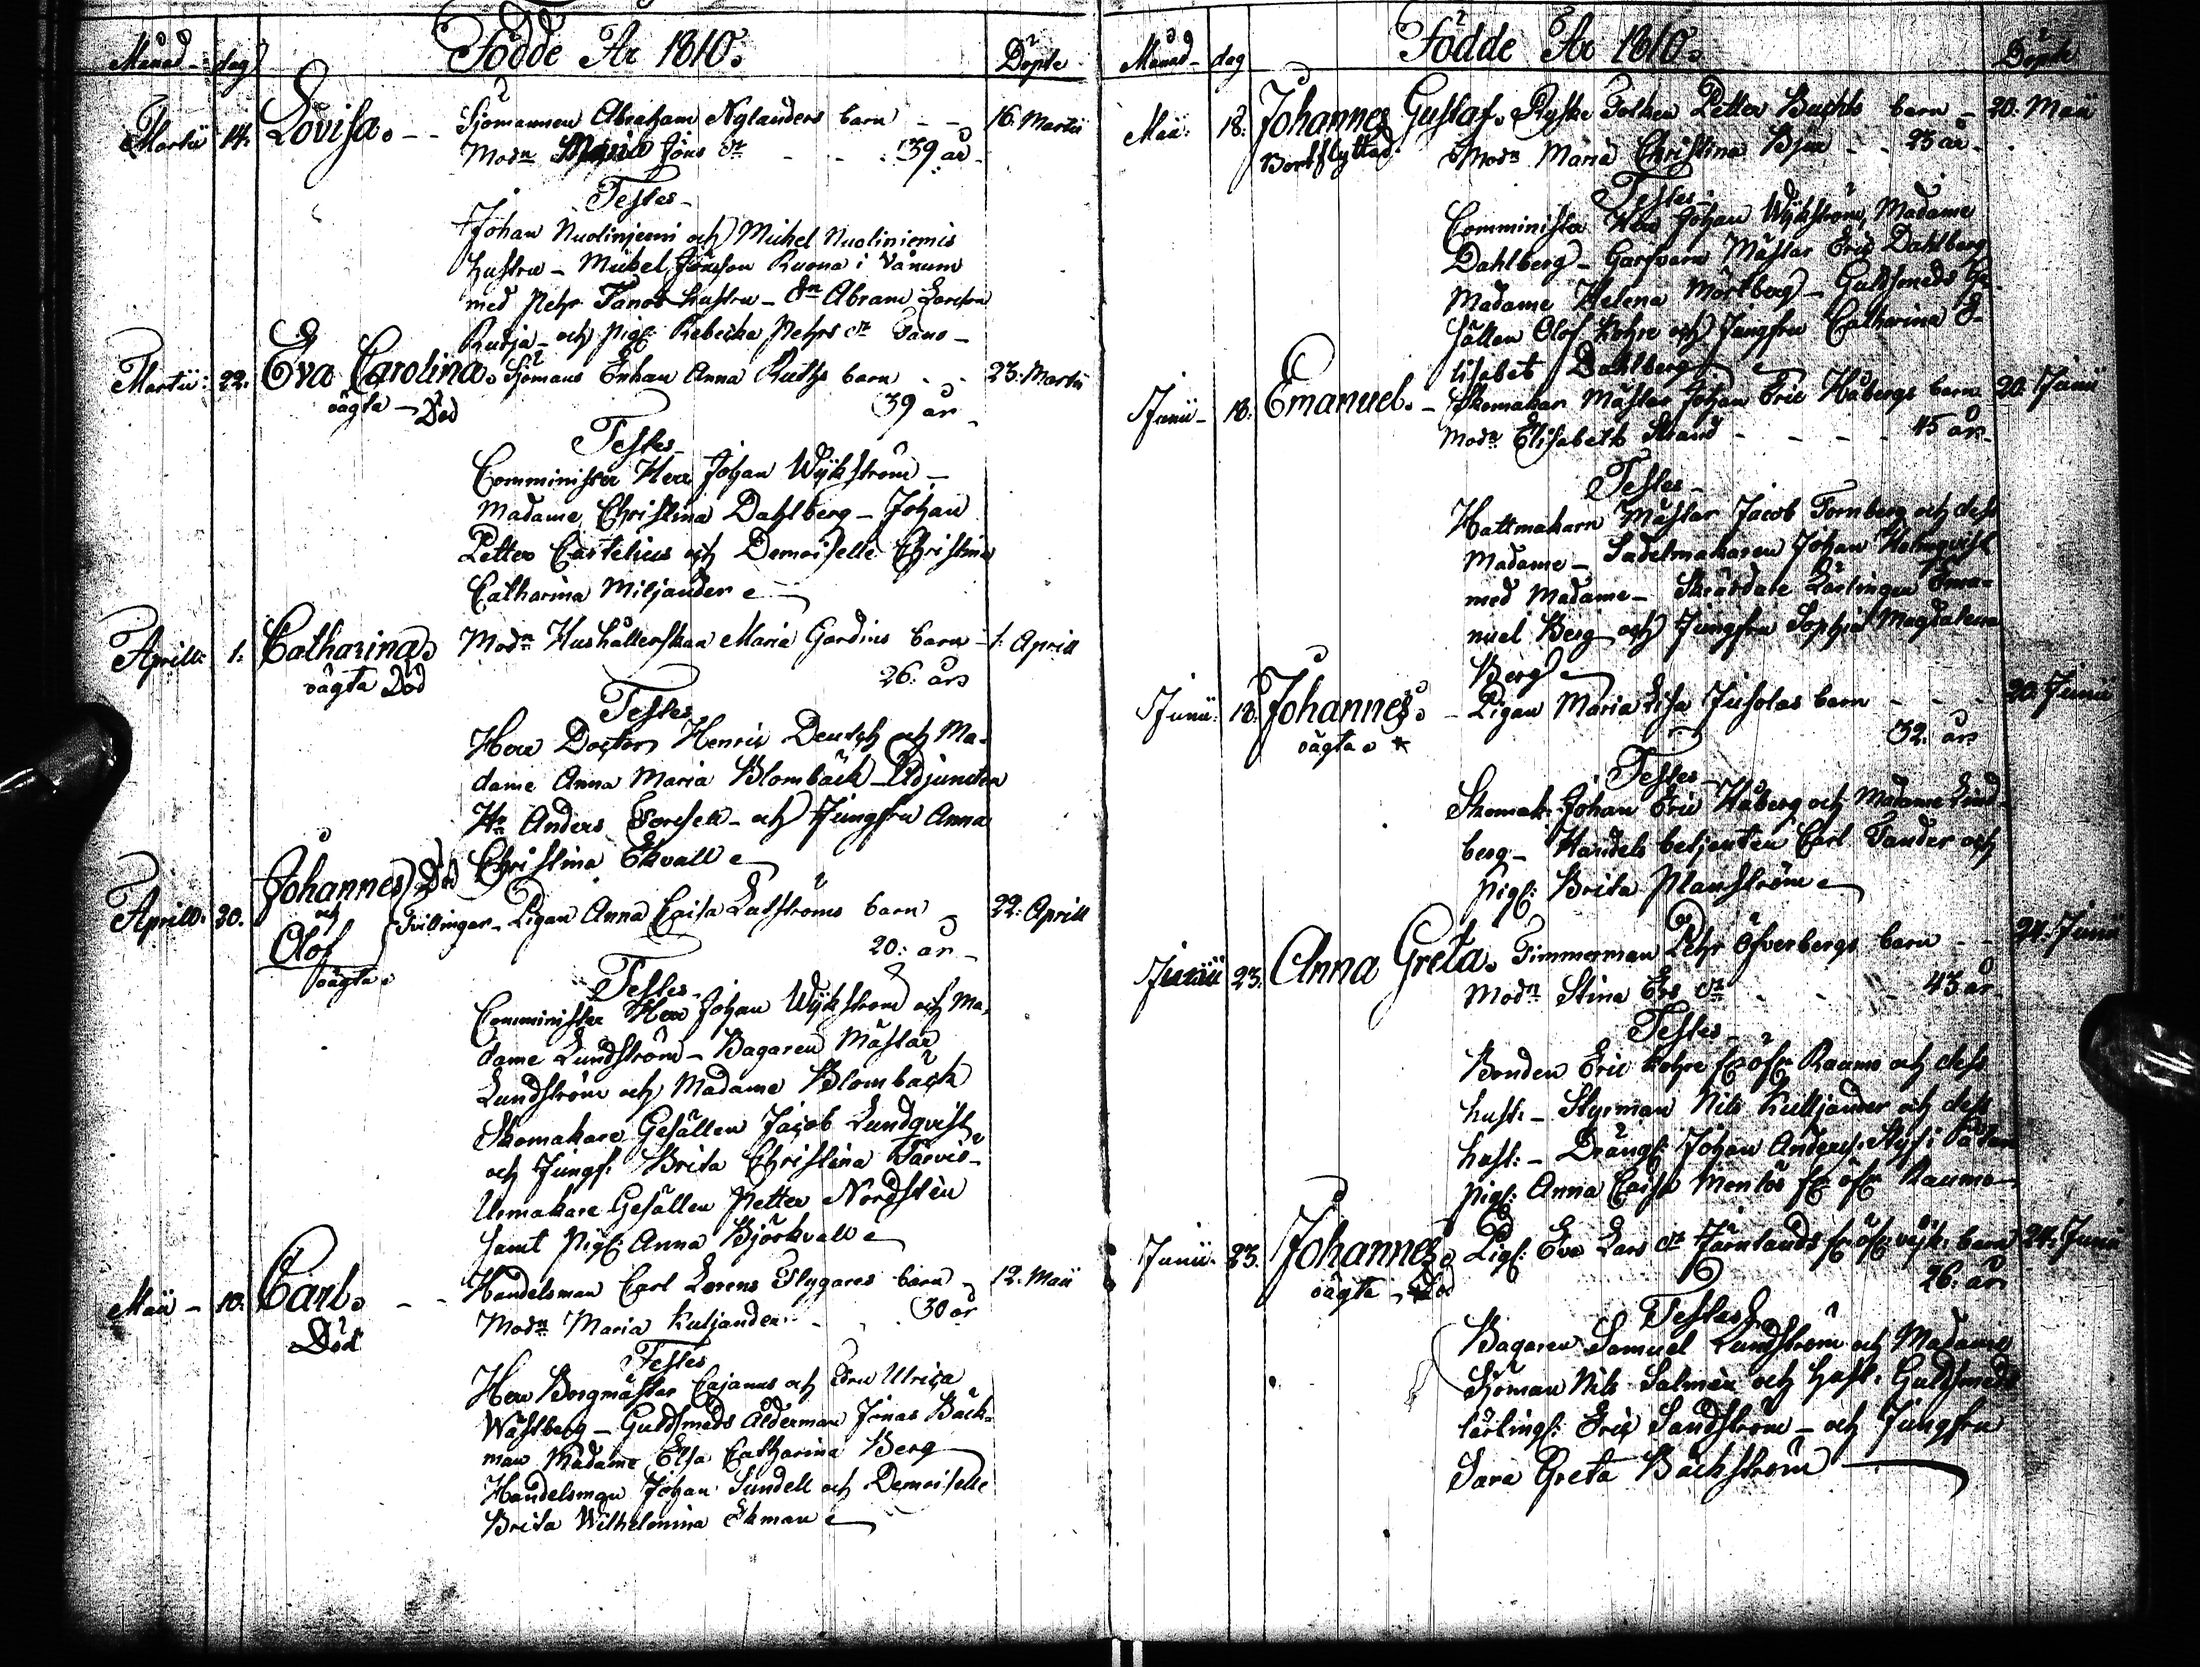 Månad dag Födde År 1810. Döpte
Martii 14. Lovisa. Sjömannen Abraham Nylanders barn 16. Martii
Modn Maria Jöns dr 39 år
Testes
Johan Nuoliniemi och Michel Nuoliniemis
hustru - Michel Jönsson Ruona i
med Pehr hustru - Abram
och Pig: Rebecka Pehrs dr
Martii: 22. Eva Carolina. Sjömans Enkan Anna Ruths barn 23. Martii
oägta - Död 39 år
Testes
Comminister Herr Johan Wykström -
Madame Christina Dahlberg - Johan
Petter Castelius och Demoiselle Christina
Catharina Miljander
Aprill: 1. Catharina. Modn Hushållerskan Maria Gardins barn 1. Aprill
oägta Död 26. år
Testes
Herr Doctor Henric Deutsch och Ma-
dame Anna Maria Blombäck - Adjuncten
Hr Anders - och Jungfru Anna
Christina Ekvall
Johannes Död
Aprill: 20. och Tvillingar - Pigan Anna Caisa barn 22. Aprill
Olof 20: år
oägta
Testes
Comminister Herr Johan Wykström och Ma-
dame Lundström - Bagaren Mästar
Lundström och Madame Blombäck
Skomakare Gesällen Jacob Lundqvist
och Jungf: Brita Christina
Urmakare Gesällen Petter Nordsten
samt Pig: Anna Björkvall
Maii - 10. Carl. Handelsman Carl Lorens Flygares barn 12. Maii
Död Modn Maria Kuljander 30 år
Testes
Herr Borgmästar Cajanus och Fru Ulrica
Wåhlberg - Guldsmeds Ålderman Jonas Bäck-
man Madame Elsa Catharina Berg
Handelsman Johan Sundell och Demoiselle
Brita Wilhelmina Ekman
Månad dag Födde År 1810. Döpte
Maii: 18. Johannes Gustaf. Ryske Tolken Petter Buchts barn 20. Maii
Bortflyttad Modn Maria Christina 23 år
Testes
Comminister Herr Johan Wykström, Madame
Dahlberg - Garfvare Mästar Eric Dahlberg
Madame Helena Mörtberg - Guldsmeds Ge-
sällen Olof och Jungfru Catharina E-
lisabet Dahlberg
Junii - 18. Emanuel. Skomakar Mästar Johan Eric Håbergs barn 20. Junii
Modn Elisabeth Strand 45 år
Testes
Hattmakare Mästar Jacob Fornberg och dess
Madame - Sadelmakaren Johan Holmqvist
med Madame - Lärlingen Ema-
nuel Berg och Jungfru Sophia Magdalena
Berg
Junii: 18. Johannes. Pigan Maria Lisa Jusolas barn 20. Junii
oägta 32. år
Testes
Skomak: Johan Eric Håberg och Madame Lind-
berg - Handels betjenten Carl Fander och
Pig: Brita Planström
Junii 23. Anna Greta. Timmerman Pehr Öfverbergs barn 24. Junii
Modn Stina Ers dr 43 år
Testes
Bonden Eric fr öfr Raumo och dess
hust: - Styrman Nils Kulljander och dess
hust: - Dräng: Johan Anders:
Pig: Anna Caisa fr öfr Raumo
Junii: 23. Johannes. Pig: Eva Lars dr Järnlands barn 24. Junii
oägta - Död 26. år
Testes
Bagaren Samuel Lundström och Madame
Sjöman Nils Salmén och Hust. Guldsmeds
lärling: Eric Sandström - och Jungfru
Sara Greta Bäckström